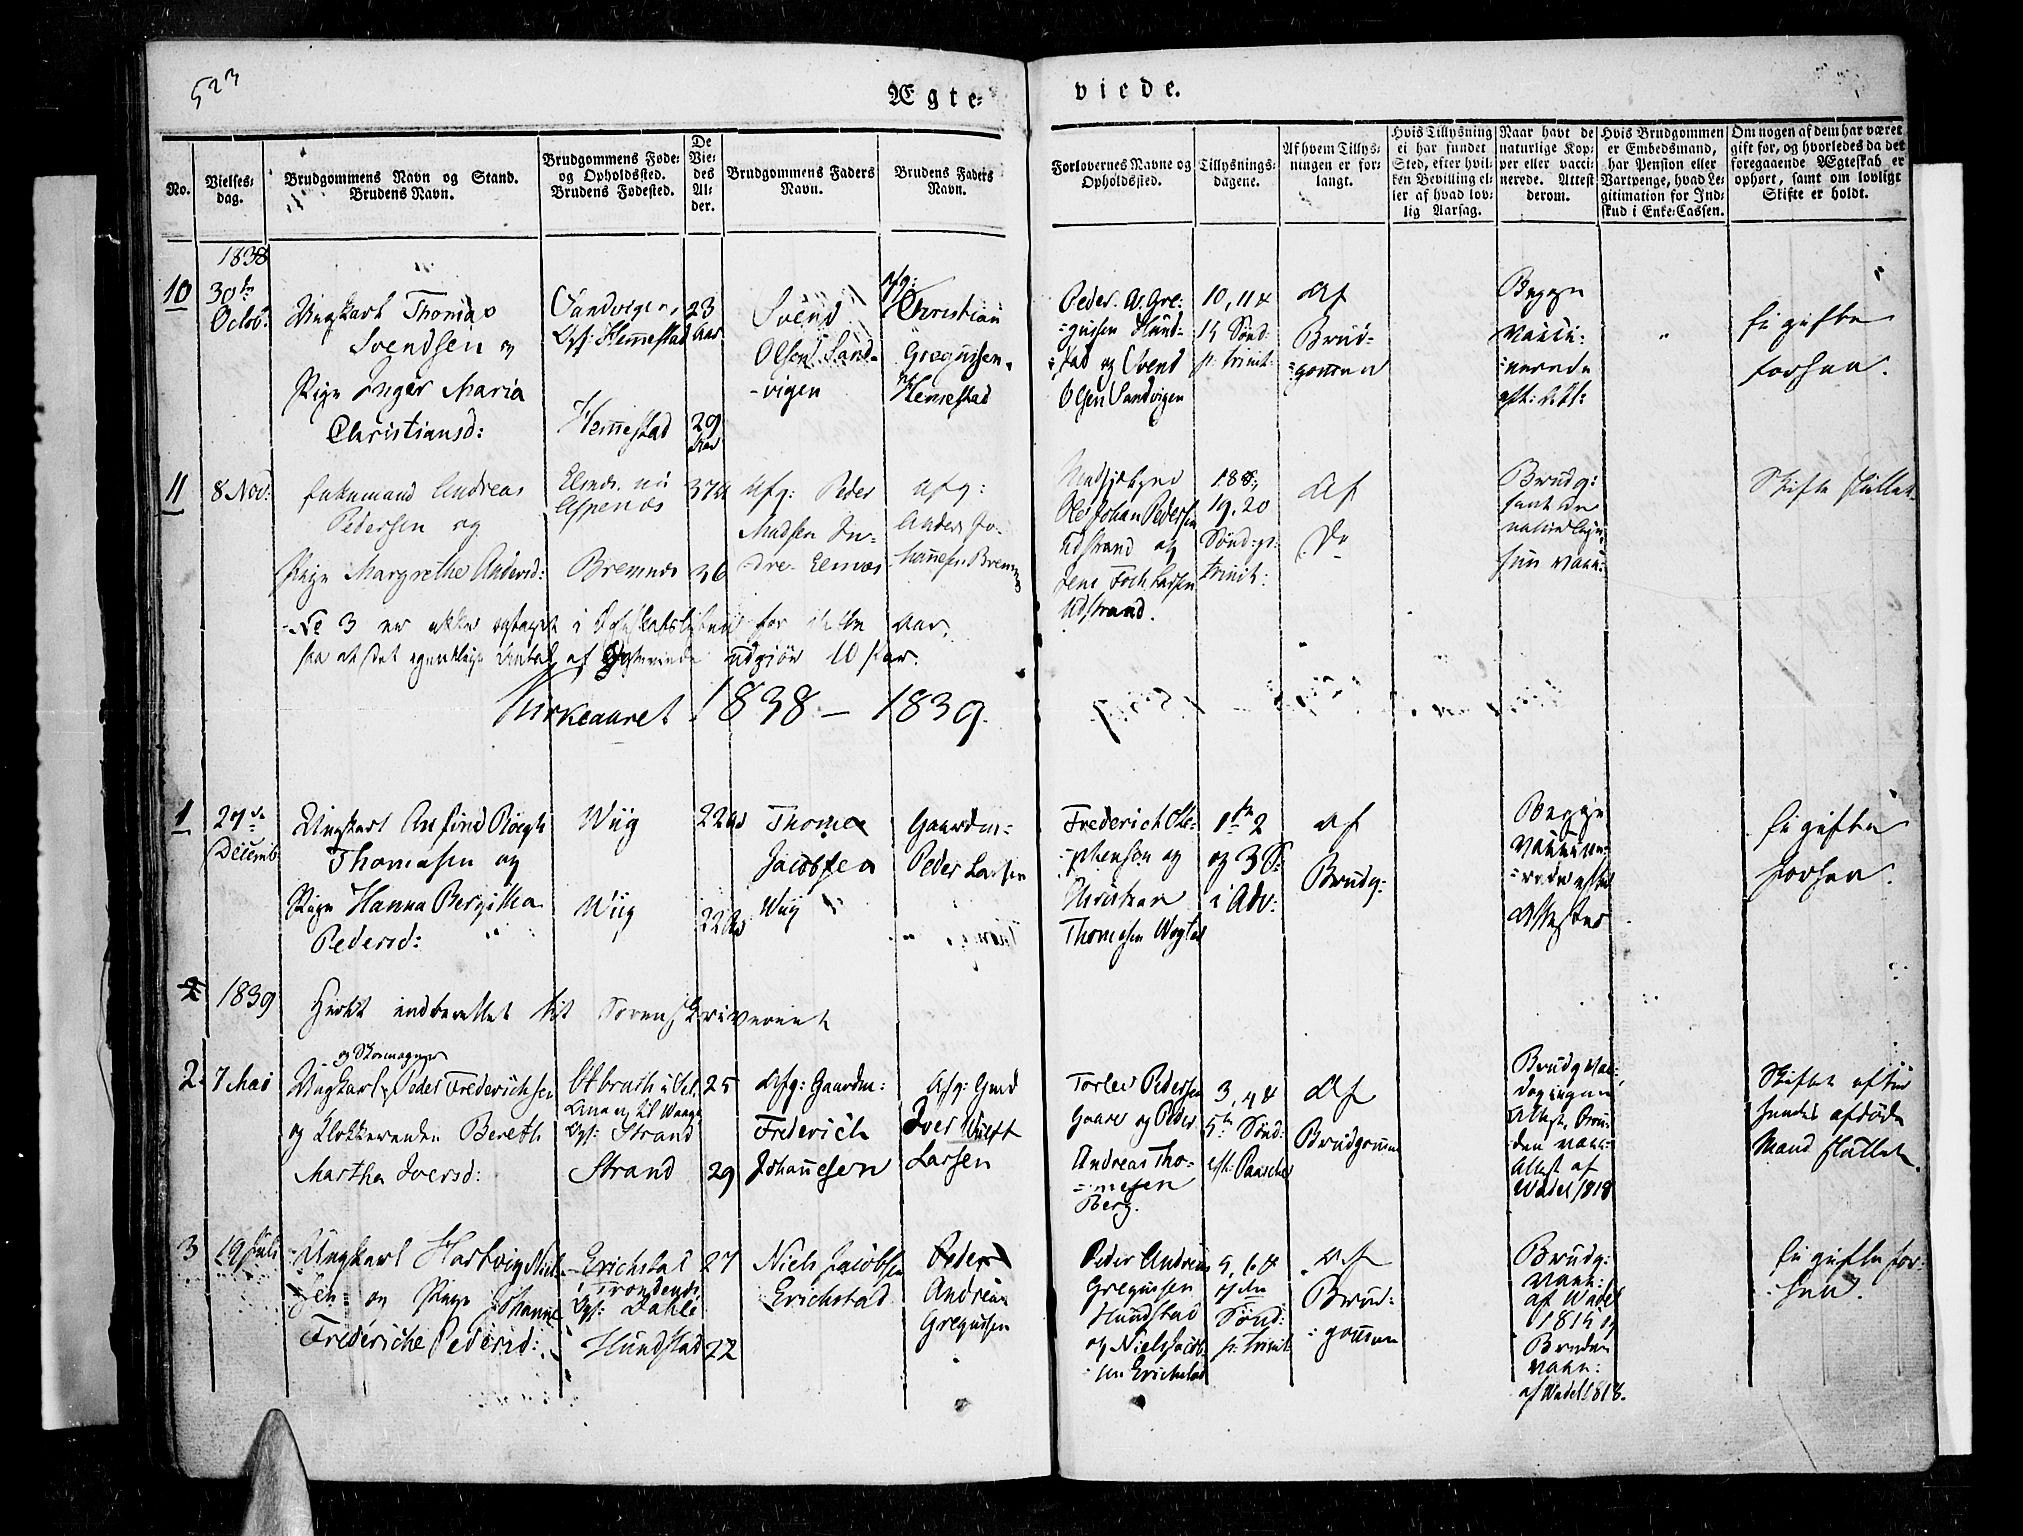 523
Ægte-
viede.
No.
Vielses-dag.
Brudgommens Navn og Stand.
Brudens Navn.
Brudgommens Føde-
og Opholdssted.
Brudens Fødested.
De
Vie-
des
Al-
der.
Brudgommens Faders
Navn.
Brudens Faders
Navn.
Forlovernes Navne og
Opholdssted.
Tillysnings-
dagene.
Af hvem Tillys-
ningen er for-
langt.
Hvis Tillysning
ei har fundet
Sted, efter hvil-
ken Bevilling el-
ler af hvad lov-
lig Aarsag.
Naar havt de
naturlige Kop-
per eller vacci-
nerede. Attest
derom.
Hvis Brudgommen
er Embedsmand,
har Pension eller
Vartpenge, hvad Le-
gitimation for Ind-
skud i Enke-Cassen.
Om nogen af dem har været
gift før, og hvorledes da det
foregaaende Ægteskab er
ophørt, samt om lovligt
Skifte er holdt.
1838
10
30te
Octob:
Ungkarl Thomas
Svendsen og
Pige Inger Maria
Christiansd:
Sandvigen,
Lgs: Hemestad
Hemestad
23
Aar
29
Aar
Svend
Olsen Sand-
-vigen
Afg:
Christian
Gregussen
Hemestad
Peder A. Gre-
-gussen Hund-
-stad og Svend
Olsen Sandvigen
10, 11 &
Sønd:
p. trinit:
Af
Brud-
-gommen
Begge
vacci-
-nerede
Ei gifte
forhen.
11
8 Nov:
Enkemand Andreas
Pedersen og
Pige Margrethe Andersd:
Elsnes nu
Aspenes
Bremnes
37
36
Afg: Peder
Madsen In-
dre- Elsnæs
Afg:
Anders Jo-
hannesen Bremnes
Ole Johan Pedersen
Udstrand og
Jens Foch Larsen
Udstrand.
18de,
19, 20
Sønd: p:
trinit:
Af
Do
Brudg:
havt de
naturlige,
hun vacc:
Skifte sluttet
No 3 er ikke optaget i Egteskabslisten for dette Aar,
saa at det egentlige Antal af Egteviede udgjør 10 Par.
Kirkeaaret 1838 - 1839.
1
27de
Decemb:
Ungkarl Anfind Røegh
Thomasen og
Pige Hanna Bergitha
Pedersd:
Wiig
Wiig
22
22
Thomas
Jacobsen
Wiig
Gaardm-
Peder Larsen
Frederich Ste-
-phensen og
Christian
Thomesen
1ste 2
og 3 S:
i Adv:
Af
Brudg:
Begge
vaccine-
-rede efter
Attester
Ei gifte
forhen.
2
1839
Hertil indberettet til Sorenskriveriet
2.
7 Mai
og Skomager
Ungkarl Peder Frederichsen
og Klokkerenken Bereth
Martha Iversd:
Lgs: Strand
Strand
25
29
Afg: Gaardm:
Frederich
Johannesen
Afg: Gmd
Iver Wulff
Larsen
Torlev Pedersen
Gaare og Peder
Andreas Tho-
-mesen
Berg.
3, 4 &
5te Sønd:
eft: Paaske
Af
Brudgommen
Attest, Bru-
den vacc:
Attest af
Wadel 1818
Skiftet efter
hendes afdøde
Mand sluttet.
3
19 Juli
Ungkarl Hartvig Niel-
sen og Pige Johanne
Frederiche Pedersd:
Erichstad
i Trondenes
Lgs: Dahle
Hundstad
27
22
Niels Jacobsen
Erichstad
Peder
Andreas
Gregussen
Peder Andreas
Gregussen
Hundstad
og Niels Jacob-
sen Erichstad
5, 6 &
7de
Sønd:
p: trinit:
Af
Brud-
-gommen
Brudg:
vacc:
af Wadel
Bruden
vacc:
af Wadel 1818.
Ei gifte for-
hen.